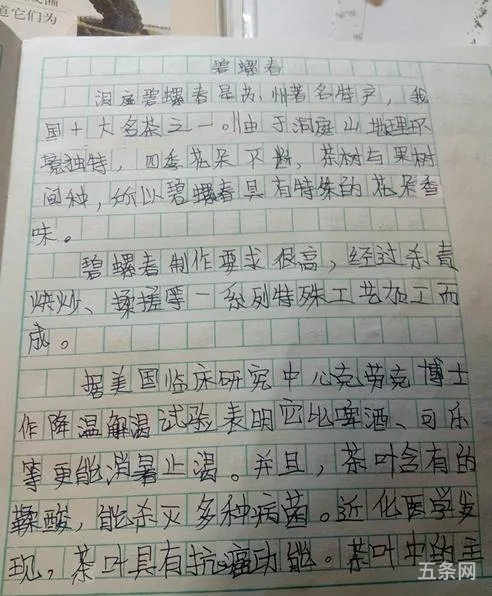 道它们为
碧螺春
洞庭碧螺春是苏州著名特产，我
国十大名茶之一。由于洞庭山地理环
境独特，四季花朵不断，茶树与果树
间种，所以碧螺春具有特殊的花朵香
味。
碧螺春制作要求很高，经过杀青
烘炒、揉搓等一系列特殊工艺加工而
成。
据美国临床研究中心克劳克博士
作降温解渴试验表明它比啤酒、可乐
等更能消暑止渴。并且，茶叶含有的
鞣酸，能杀灭多种病菌。近化医学发
现，茶叶具有抗癌功能。茶叶中的主
五条网